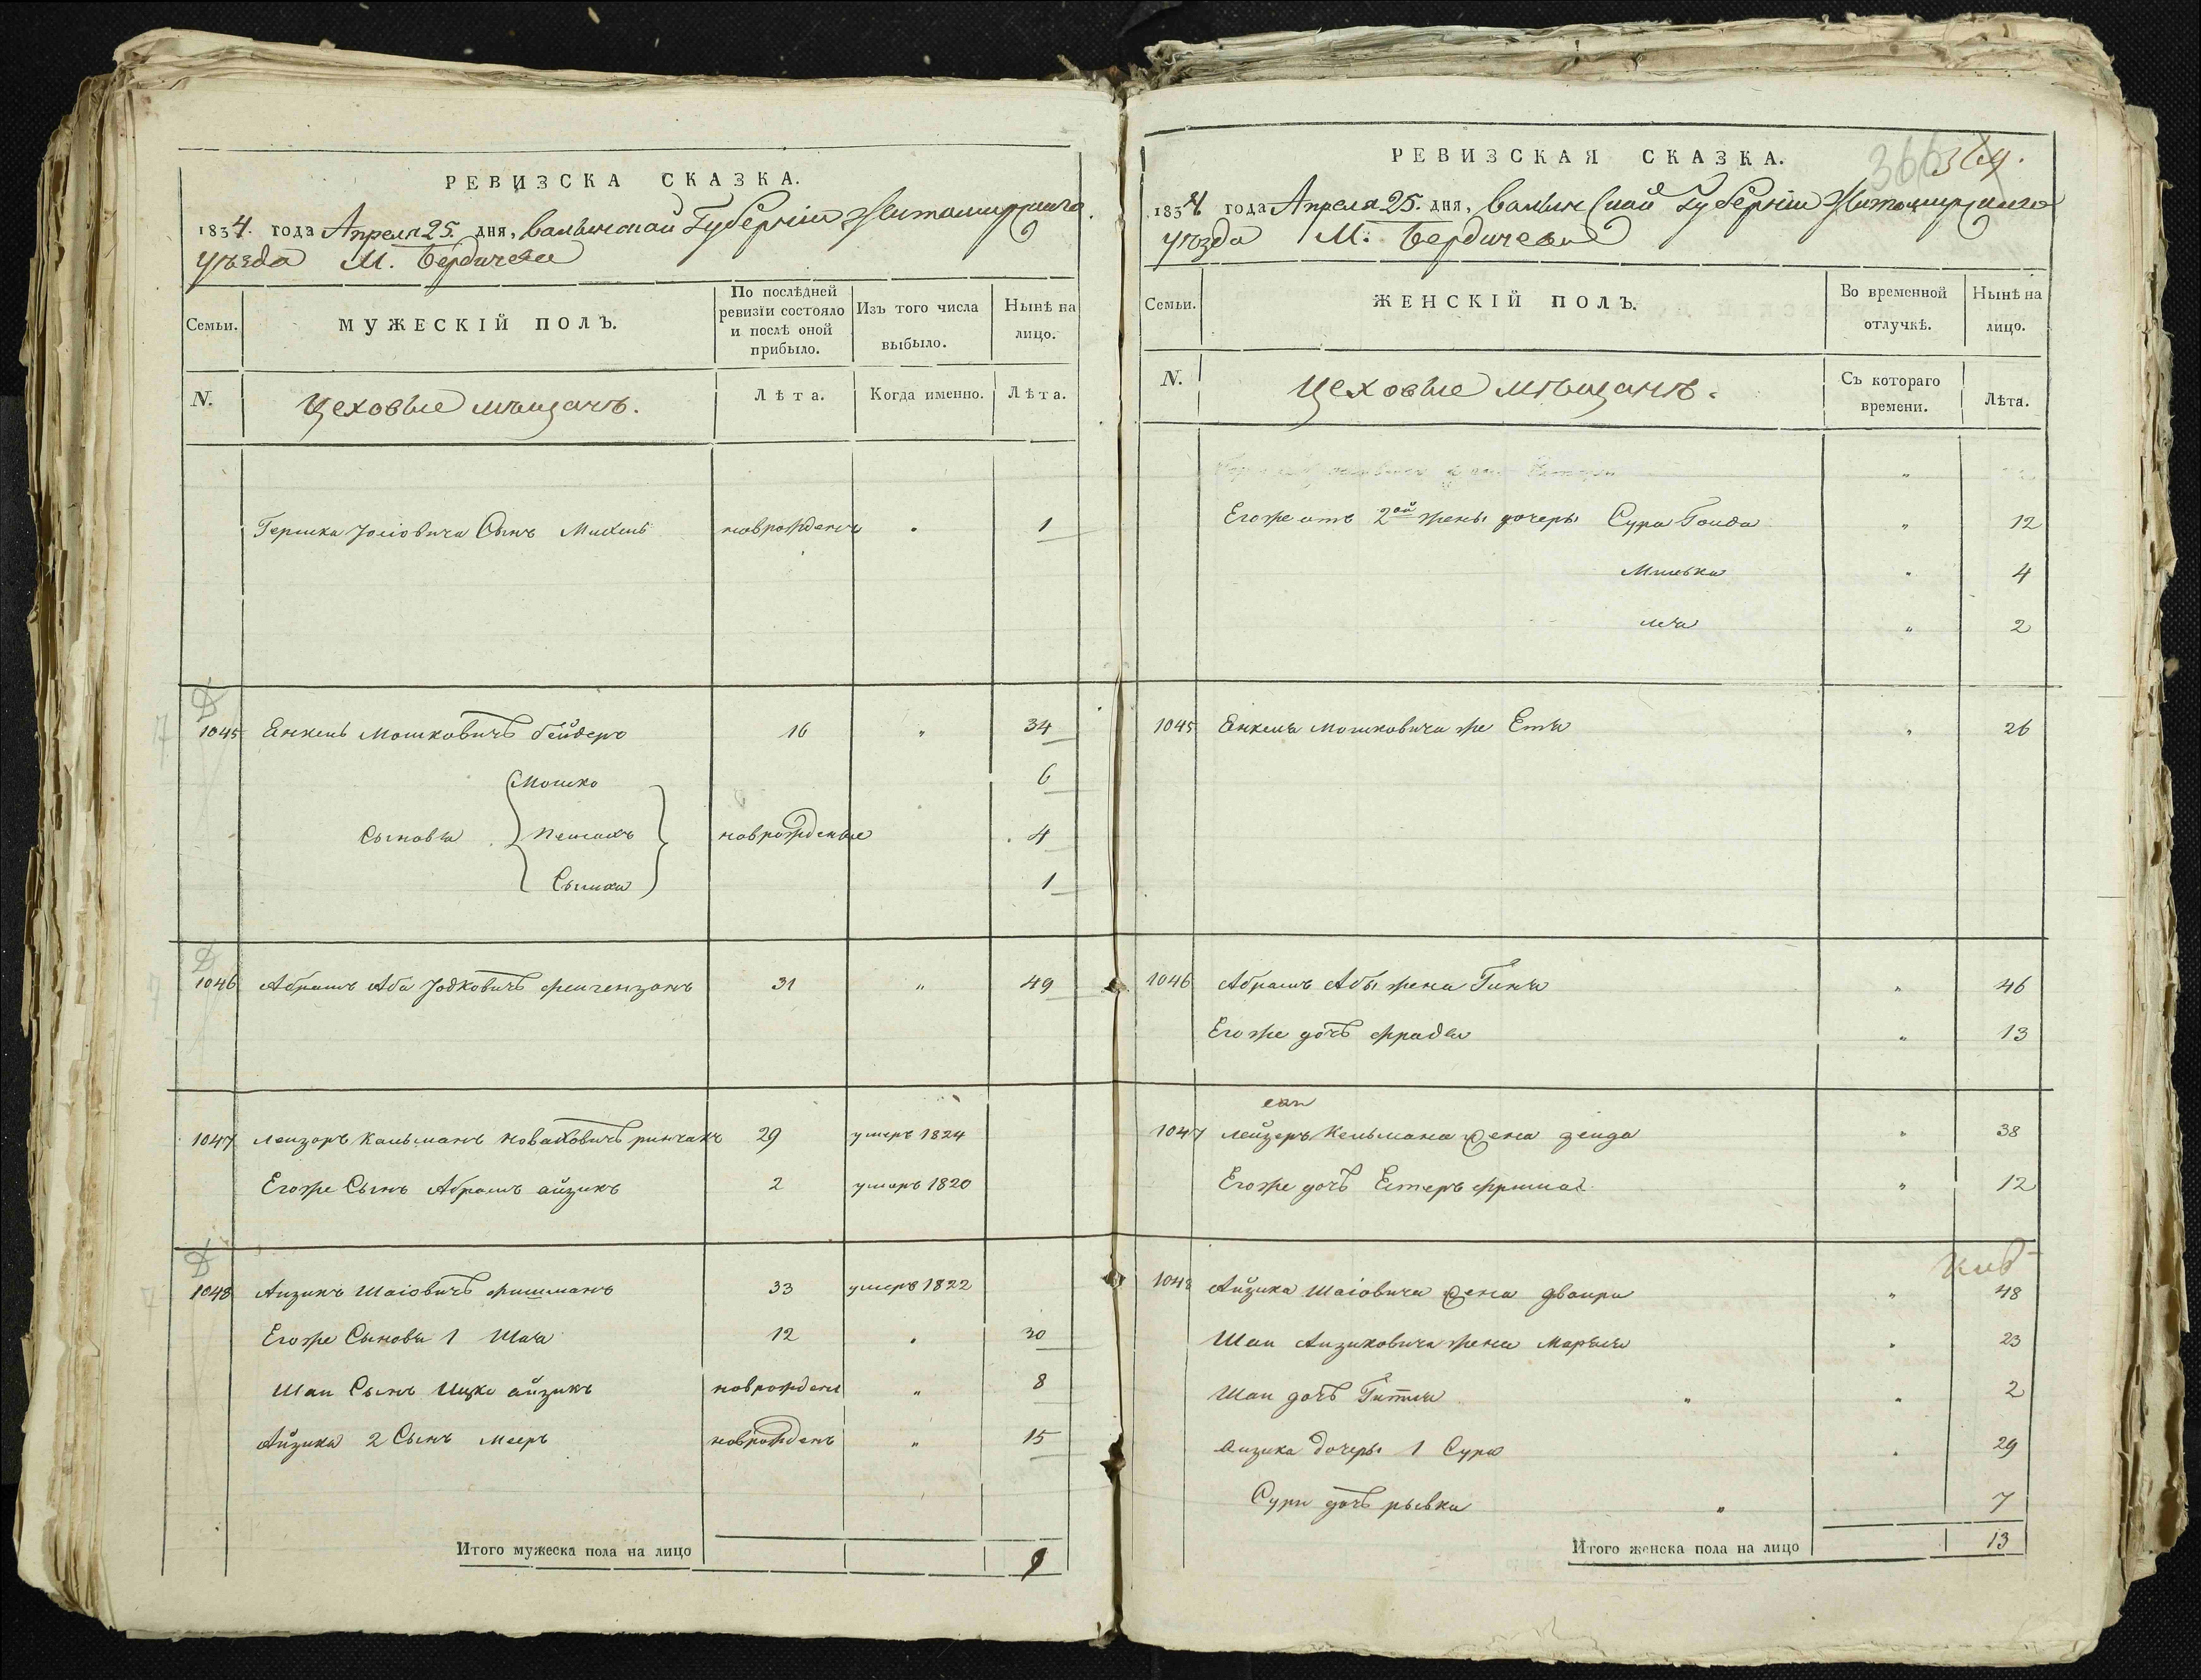 РЕВИЗСКА СКАЗКА.
1834. года Апреля 25. дня, Валынской Губернiи Житомирскаго
уѣзда М. Бердичева
Семьи.
МУЖЕСКIЙ ПОЛЪ.
По послѣдней ревизiи состояло и послѣ оной прибыло.
Изъ того числа выбыло.
Нынѣ на лицо.
N.
Цеховые мѣщанъ.
Лѣта.
Когда именно.
Лѣта.
Гершка Iосiовича Сынъ новрожденъ 1
1045 Енкель Мошковичъ бейдеръ 16 " 34
Мошко 6
Сыновья Пейсахъ новрожденые 4
Сымха 1
1046 Абрамъ Аба Iодковичъ 31 " 49
1047 Лейзоръ Кальманъ Новаховичъ ринчакъ 29 умеръ 1824
Егоже Сынъ Абрамъ айзикъ 2 умеръ 1820
1048 Аизикъ Шаiовичъ фишманъ 33 умеръ 1822
Егоже Сыновья 1 Шая 12 30
Шаи Сынъ Ицко айзикъ новрожденъ " 8
Айзика 2 Сынъ Мееръ новрожденъ " 15
Итого мужеска пола на лицо 9
РЕВИЗСКАЯ СКАЗКА.
366
1834 года Апреля 25. дня, Валынской Губернiи Житомирскаго
уѣзда М. Бердичева
Семьи.
ЖЕНСКIЙ ПОЛЪ.
Во временной отлучкѣ.
Нынѣ на лицо.
N.
Цеховые мѣщанъ.
Съ котораго времени.
Лѣта.
Егоже отъ 2ой жены дочеры Сура Гоида " 12
" 4
" 2
1045 Енкеля Мошковича же Етя " 26
1046 Абрамъ Абы жена Гиня " 46
Егоже дочъ фрадья " 13
1047 Лейзеръ Кельмана жена Зенда " 38
Егоже дочъ Естеръ " 12
1048 Айзика Шаiовича жена двоира " 48
Шаи Аизиковича жена Марьяя " 23
Шаи дочъ Гитля " 2
Аизика дочеры 1 Сура 29
Суры дочъ рывка " 7
Итого женска пола на лицо 13